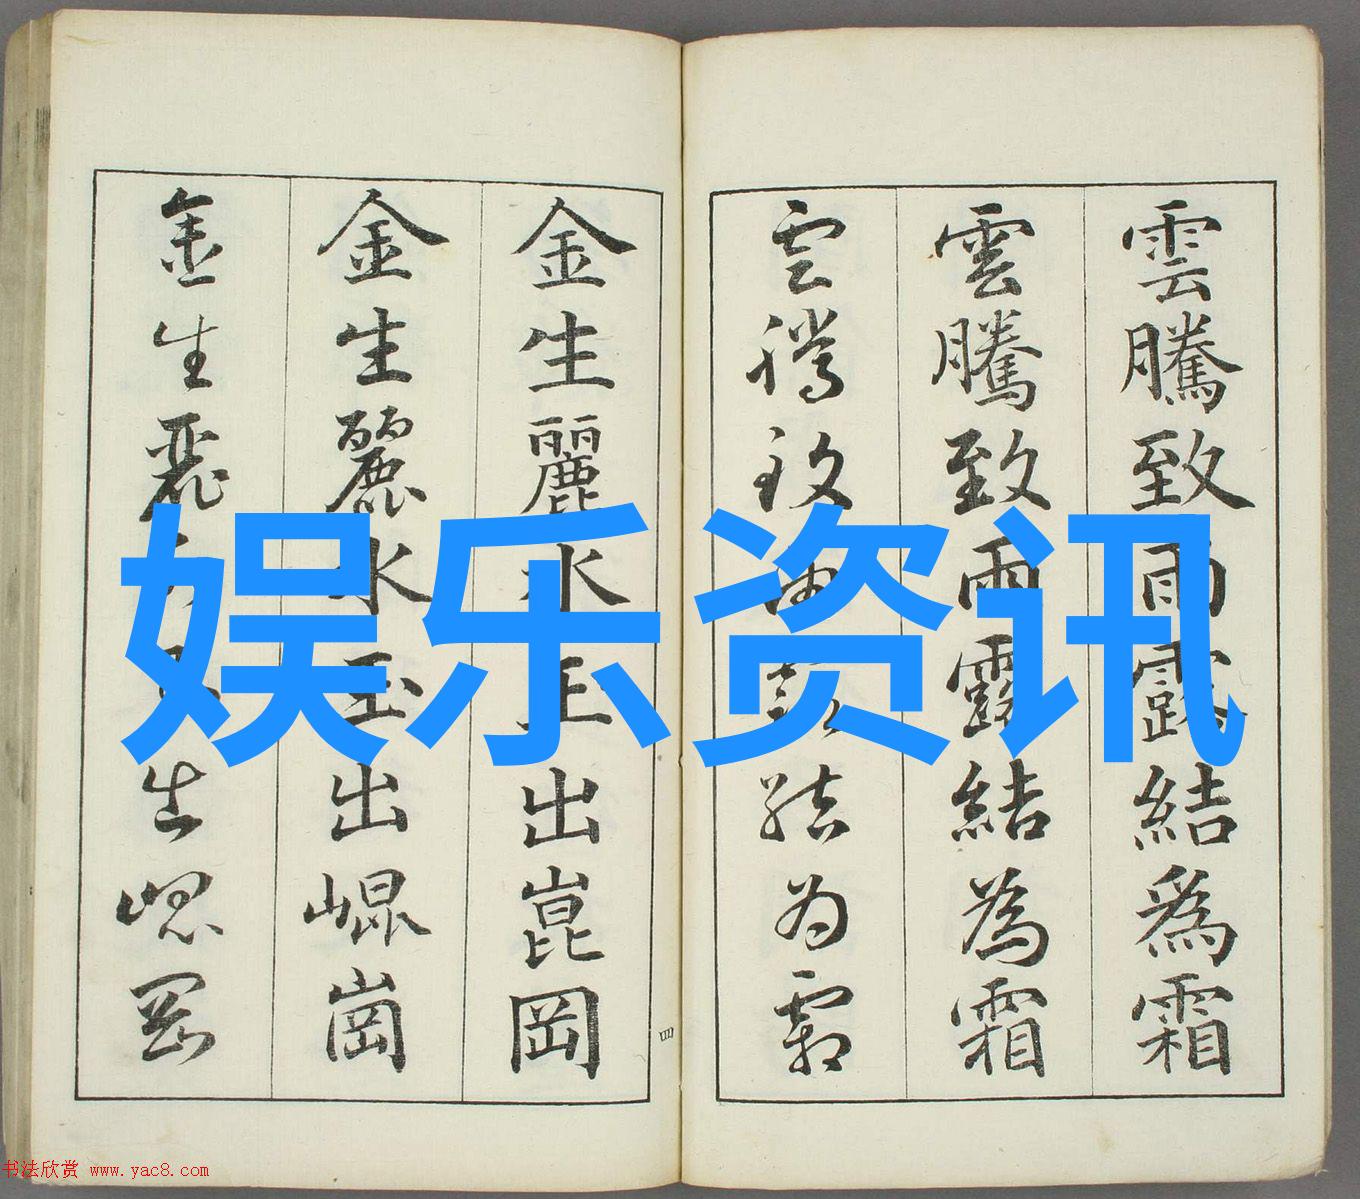 雲騰致雨露結爲霜
雲騰致雨露結為霜
雲騰致雨露結为霜
金生麗水玉出崑岡
金生麗水玉出崐崗
金生麗水玉出崐岡
四
娱乐资讯
书法欣赏 www.yac8.com